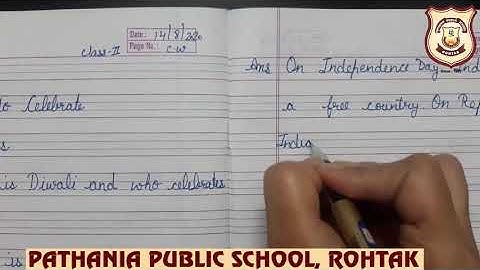 Date: 14/8/20
Page No.: C.W
Class-II
to Celebrate
is Diwali and who celebrates
is
Ans On Independence Day
a free country. On Rep
India
PATHANIA PUBLIC SCHOOL, ROHTAK